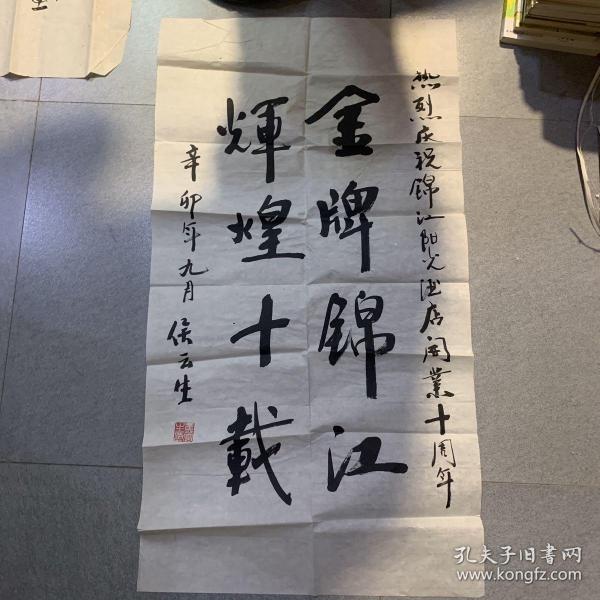 热烈庆祝锦江阳光酒店开业十周年
金牌锦江
輝煌十載
辛卯年九月 侯云生
孔夫子旧书网
www.kongfz.com